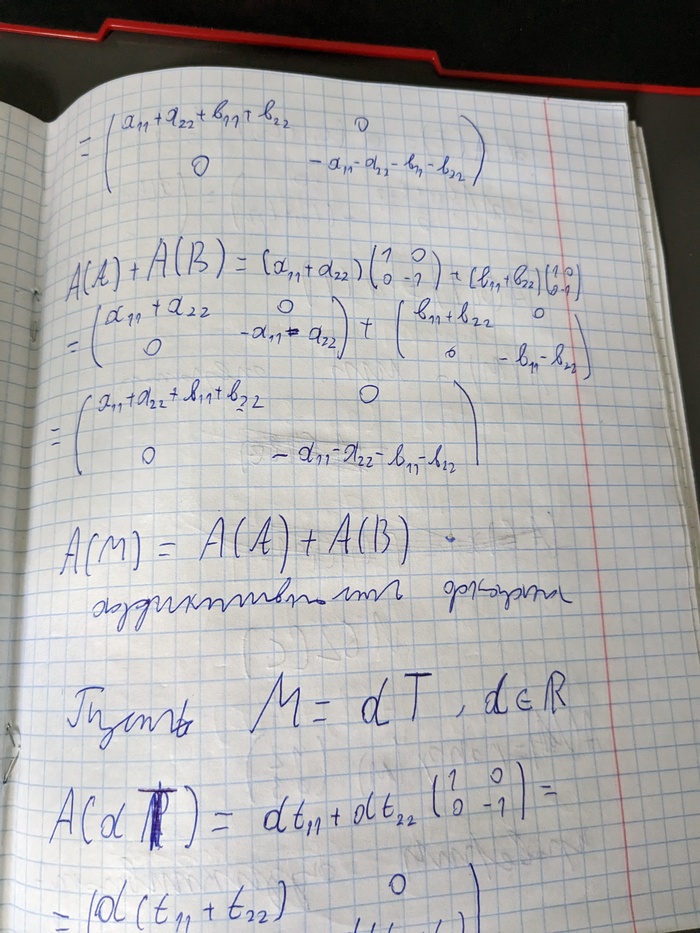 = ( a₁₁ + a₂₂ + b₁₁ + b₂₂ 0
0 - a₁₁ - a₂₂ - b₁₁ - b₂₂ )
A(A) + A(B) = (a₁₁ + a₂₂) ( 1 0 0 -1 ) + (b₁₁ + b₂₂) ( 1 0 0 -1 )
= ( a₁₁ + a₂₂ 0 0 -a₁₁ - a₂₂ ) + ( b₁₁ + b₂₂ 0 0 - b₁₁ - b₂₂ )
= ( a₁₁ + a₂₂ + b₁₁ + b₂₂ 0
0 - a₁₁ - a₂₂ - b₁₁ - b₂₂ )
A(M) = A(A) + A(B)
аддитивность доказана
Пусть M = αT, α ∈ ℝ
A(αT) = αt₁₁ + αt₂₂ ( 1 0 0 -1 ) =
= ( α(t₁₁ + t₂₂) 0